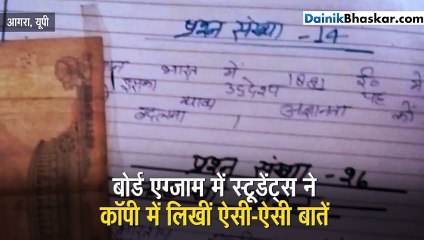 आगरा, यूपी
DainikBhaskar.com
प्रश्न संख्या -14
भारत में 1881 ई० में
उद्देश्य यह
बदलना । को
प्रश्न संख्या -26
बोर्ड एग्जाम में स्टूडेंट्स ने
कॉपी में लिखीं ऐसी-ऐसी बातें